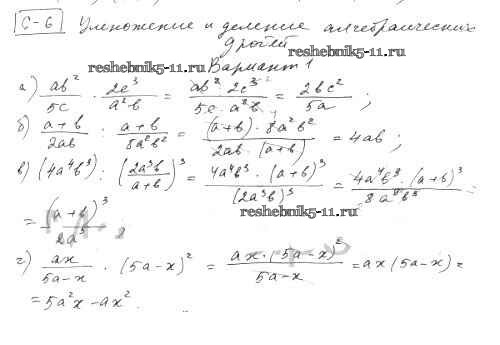 С-6 Умножение и деление алгебраических
дробей
reshebnik5-11.ru
reshebnik5-11.ru
Вариант 1
а) ab²/5c · 2c³/a²b = ab² · 2c³/5c · a²b = 2bc²/5a ;
б) a+b/2ab : a+b/8a²b² = (a+b) · 8a²b²/2ab · (a+b) = 4ab ;
в) (4a⁴b³) : (2a³b/a+b)³ = 4a⁴b³ · (a+b)³/(2a³b)³ = 4a⁴b³ · (a+b)³/8a⁹b³ =
reshebnik5-11.ru
= (a+b)³/2a⁵
г) ax/5a-x · (5a-x)² = ax · (5a-x)²/5a-x = ax(5a-x) =
= 5a²x - ax².